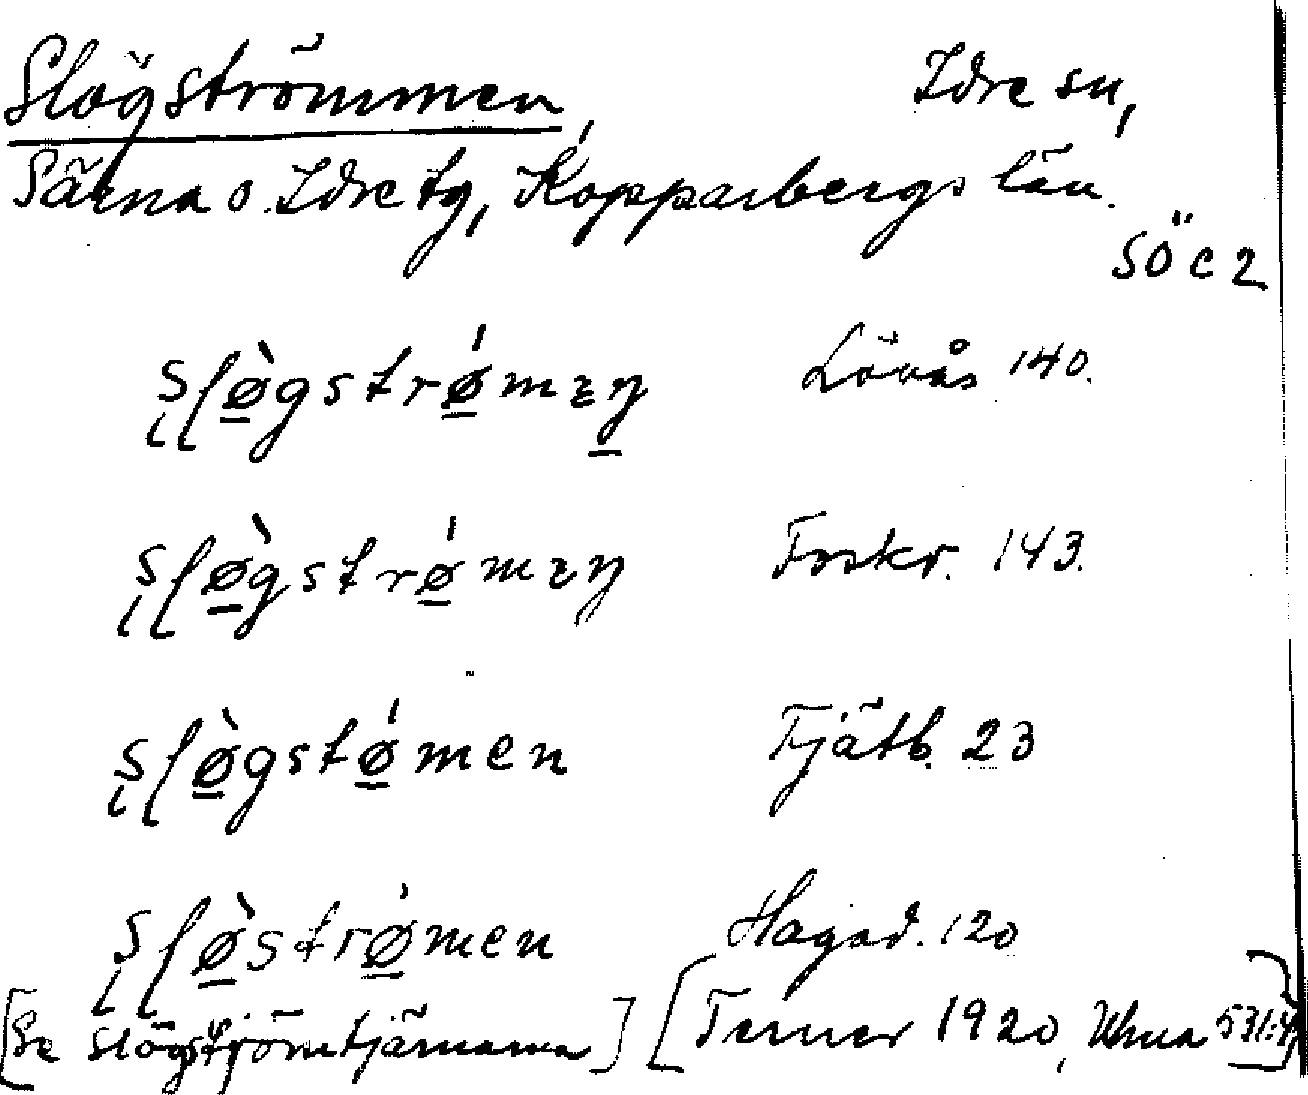 Slögströmmen, Idre sn,
Särna o. Idre tg, Kopparbergs län.
SÖ C 2
ʂlø̀gstrǿmɛn̥ Lövås 140.
ʂlø̀gstrǿmɛn Foskr. 143.
ʂlø̀gstǿmen Fjätb. 23
ʂlø̀strǿmen Hagåd. 120
[Se Slögströmtjärnarna] [Terner 1920, Uhua 531:4]